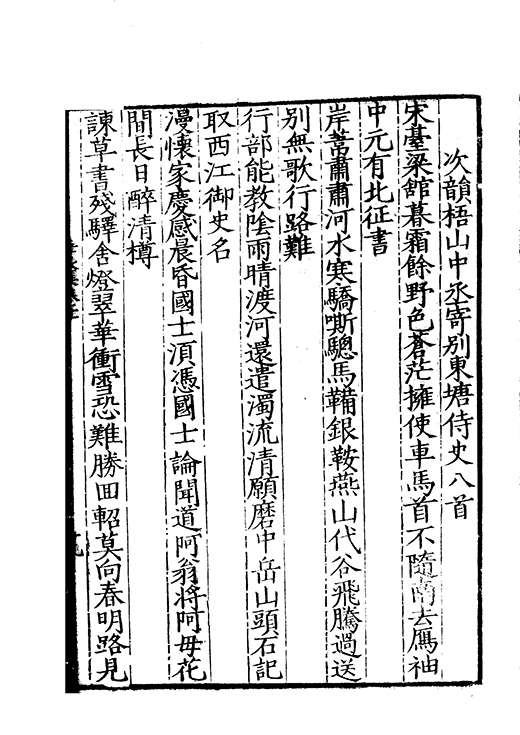 次韻梧山中丞寄別東塘侍史八首
宋臺梁舘暮霜餘野色蒼茫擁使車馬首不隨南去鴈袖
中元有北征書
岸蒿肅肅河水寒驕嘶驄馬鞴銀鞍燕山代谷飛騰過送
別無歌行路難
行部能教陰雨晴渡河還遣濁流清願磨中岳山頭石記
取西江御史名
漫懷家慶感晨昏國士湏憑國士論聞道阿翁將阿母花
間長日醉清樽
諫草書殘驛舍燈翠華衝雪恐難勝囬軺莫向春明路見